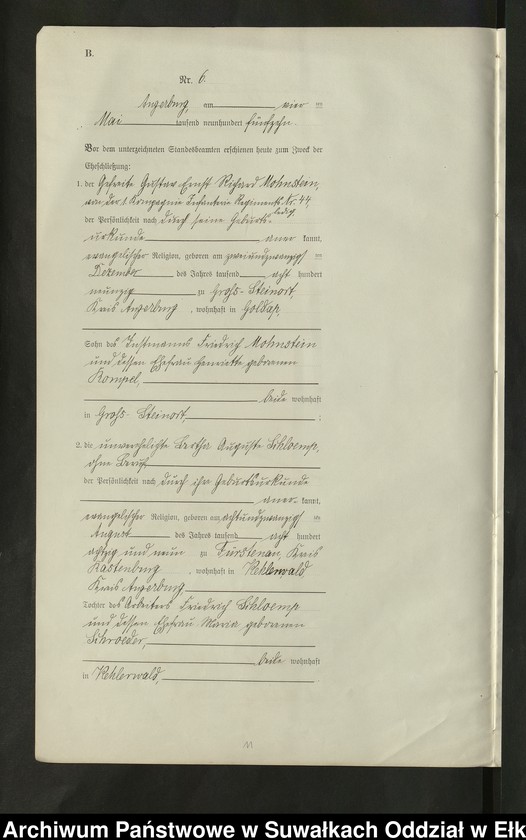 B.
Nr. 6.
Angerburg, am vier ten
Mai tausend neunhundert fünfzehn.
Vor dem unterzeichneten Standesbeamten erschienen heute zum Zweck der
Eheschließung:
1. der Gefreite Gustav Ernst Richard Mohnstein,
von der 1. Kompagnie Infanterie Regiments Nr. 44
ledig
der Persönlichkeit nach durch seine Geburts-
urkunde aner kannt,
evangelischer Religion, geboren am zweiundzwanzigsten
Dezember des Jahres tausend acht hundert
neunzig zu Groß-Steinort,
Kreis Angerburg, wohnhaft in Goldap,
Sohn des Instmanns Friedrich Mohnstein
und dessen Ehefrau Henriette geborenen
Kompel,
beide wohnhaft
in Groß-Steinort, ;
2. die unverehelichte Bertha Auguste Schloemp,
ohne Beruf
der Persönlichkeit nach durch ihre Geburtsurkunde
aner- kannt,
evangelischer Religion, geboren am achtundzwanzigsten
August des Jahres tausend acht hundert
achtzig und neun zu Fürstenau, Kreis
Rastenburg, wohnhaft in Kehlerwald
Kreis Angerburg
Tochter des Arbeiters Friedrich Schloemp
und dessen Ehefrau Maria geborenen
Schroeder,
beide wohnhaft
in Kehlerwald,
11
Archiwum Państwowe w Suwałkach Oddział w Ełk